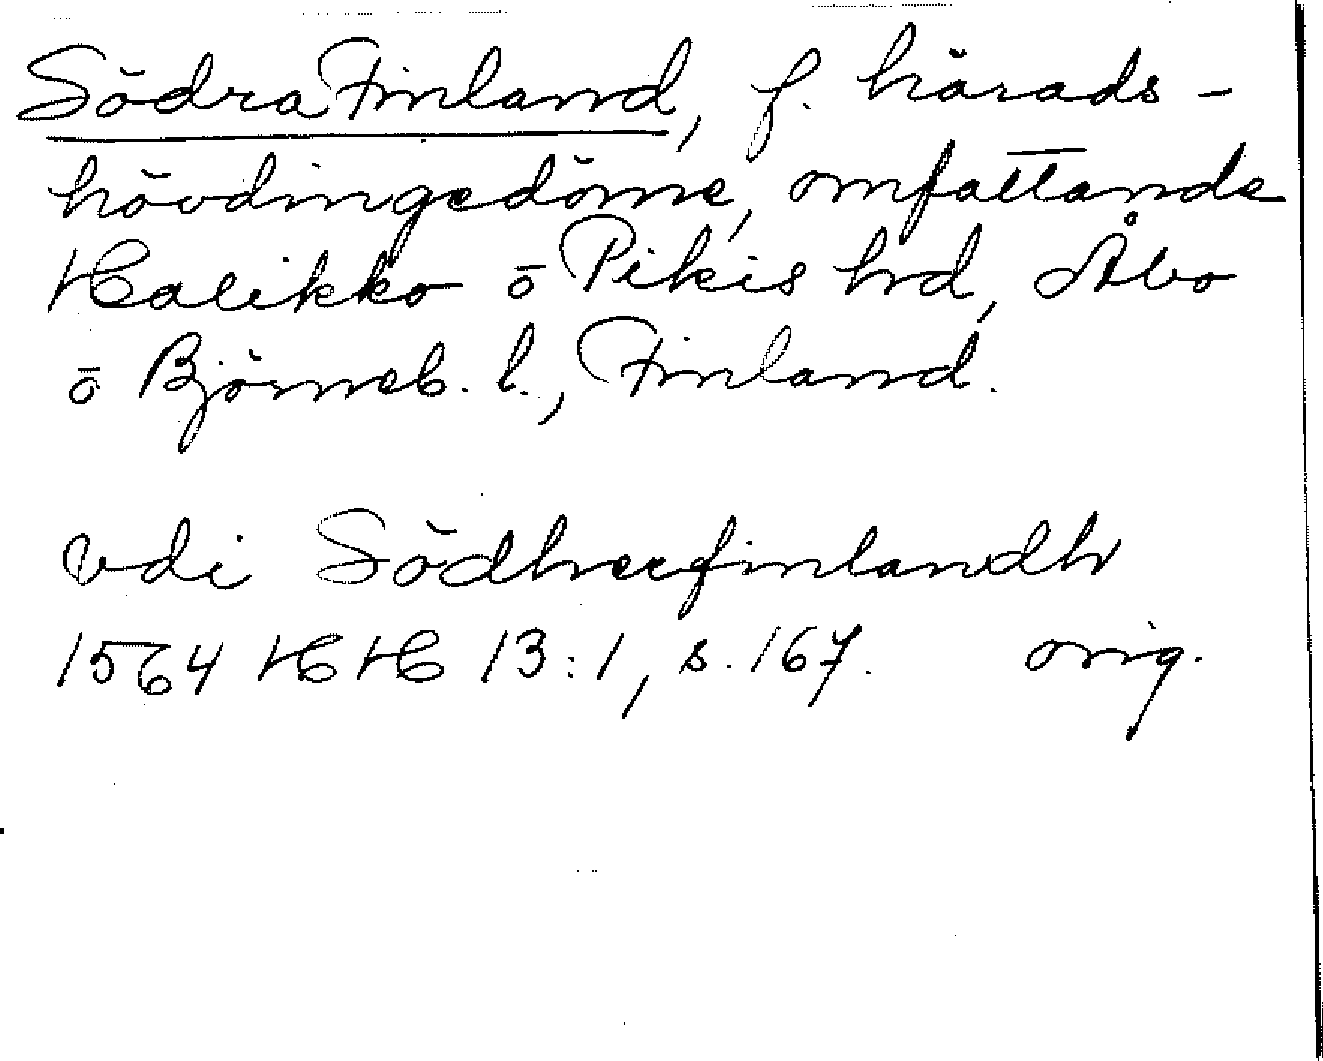 Södra Finland, f. härads-
hövdingedöme, omfattande
Halikko o Pikis hd, Åbo
o Björneb. l., Finland.
vdi Södherfinlandh
1564 HH 13:1, s. 167. orig.